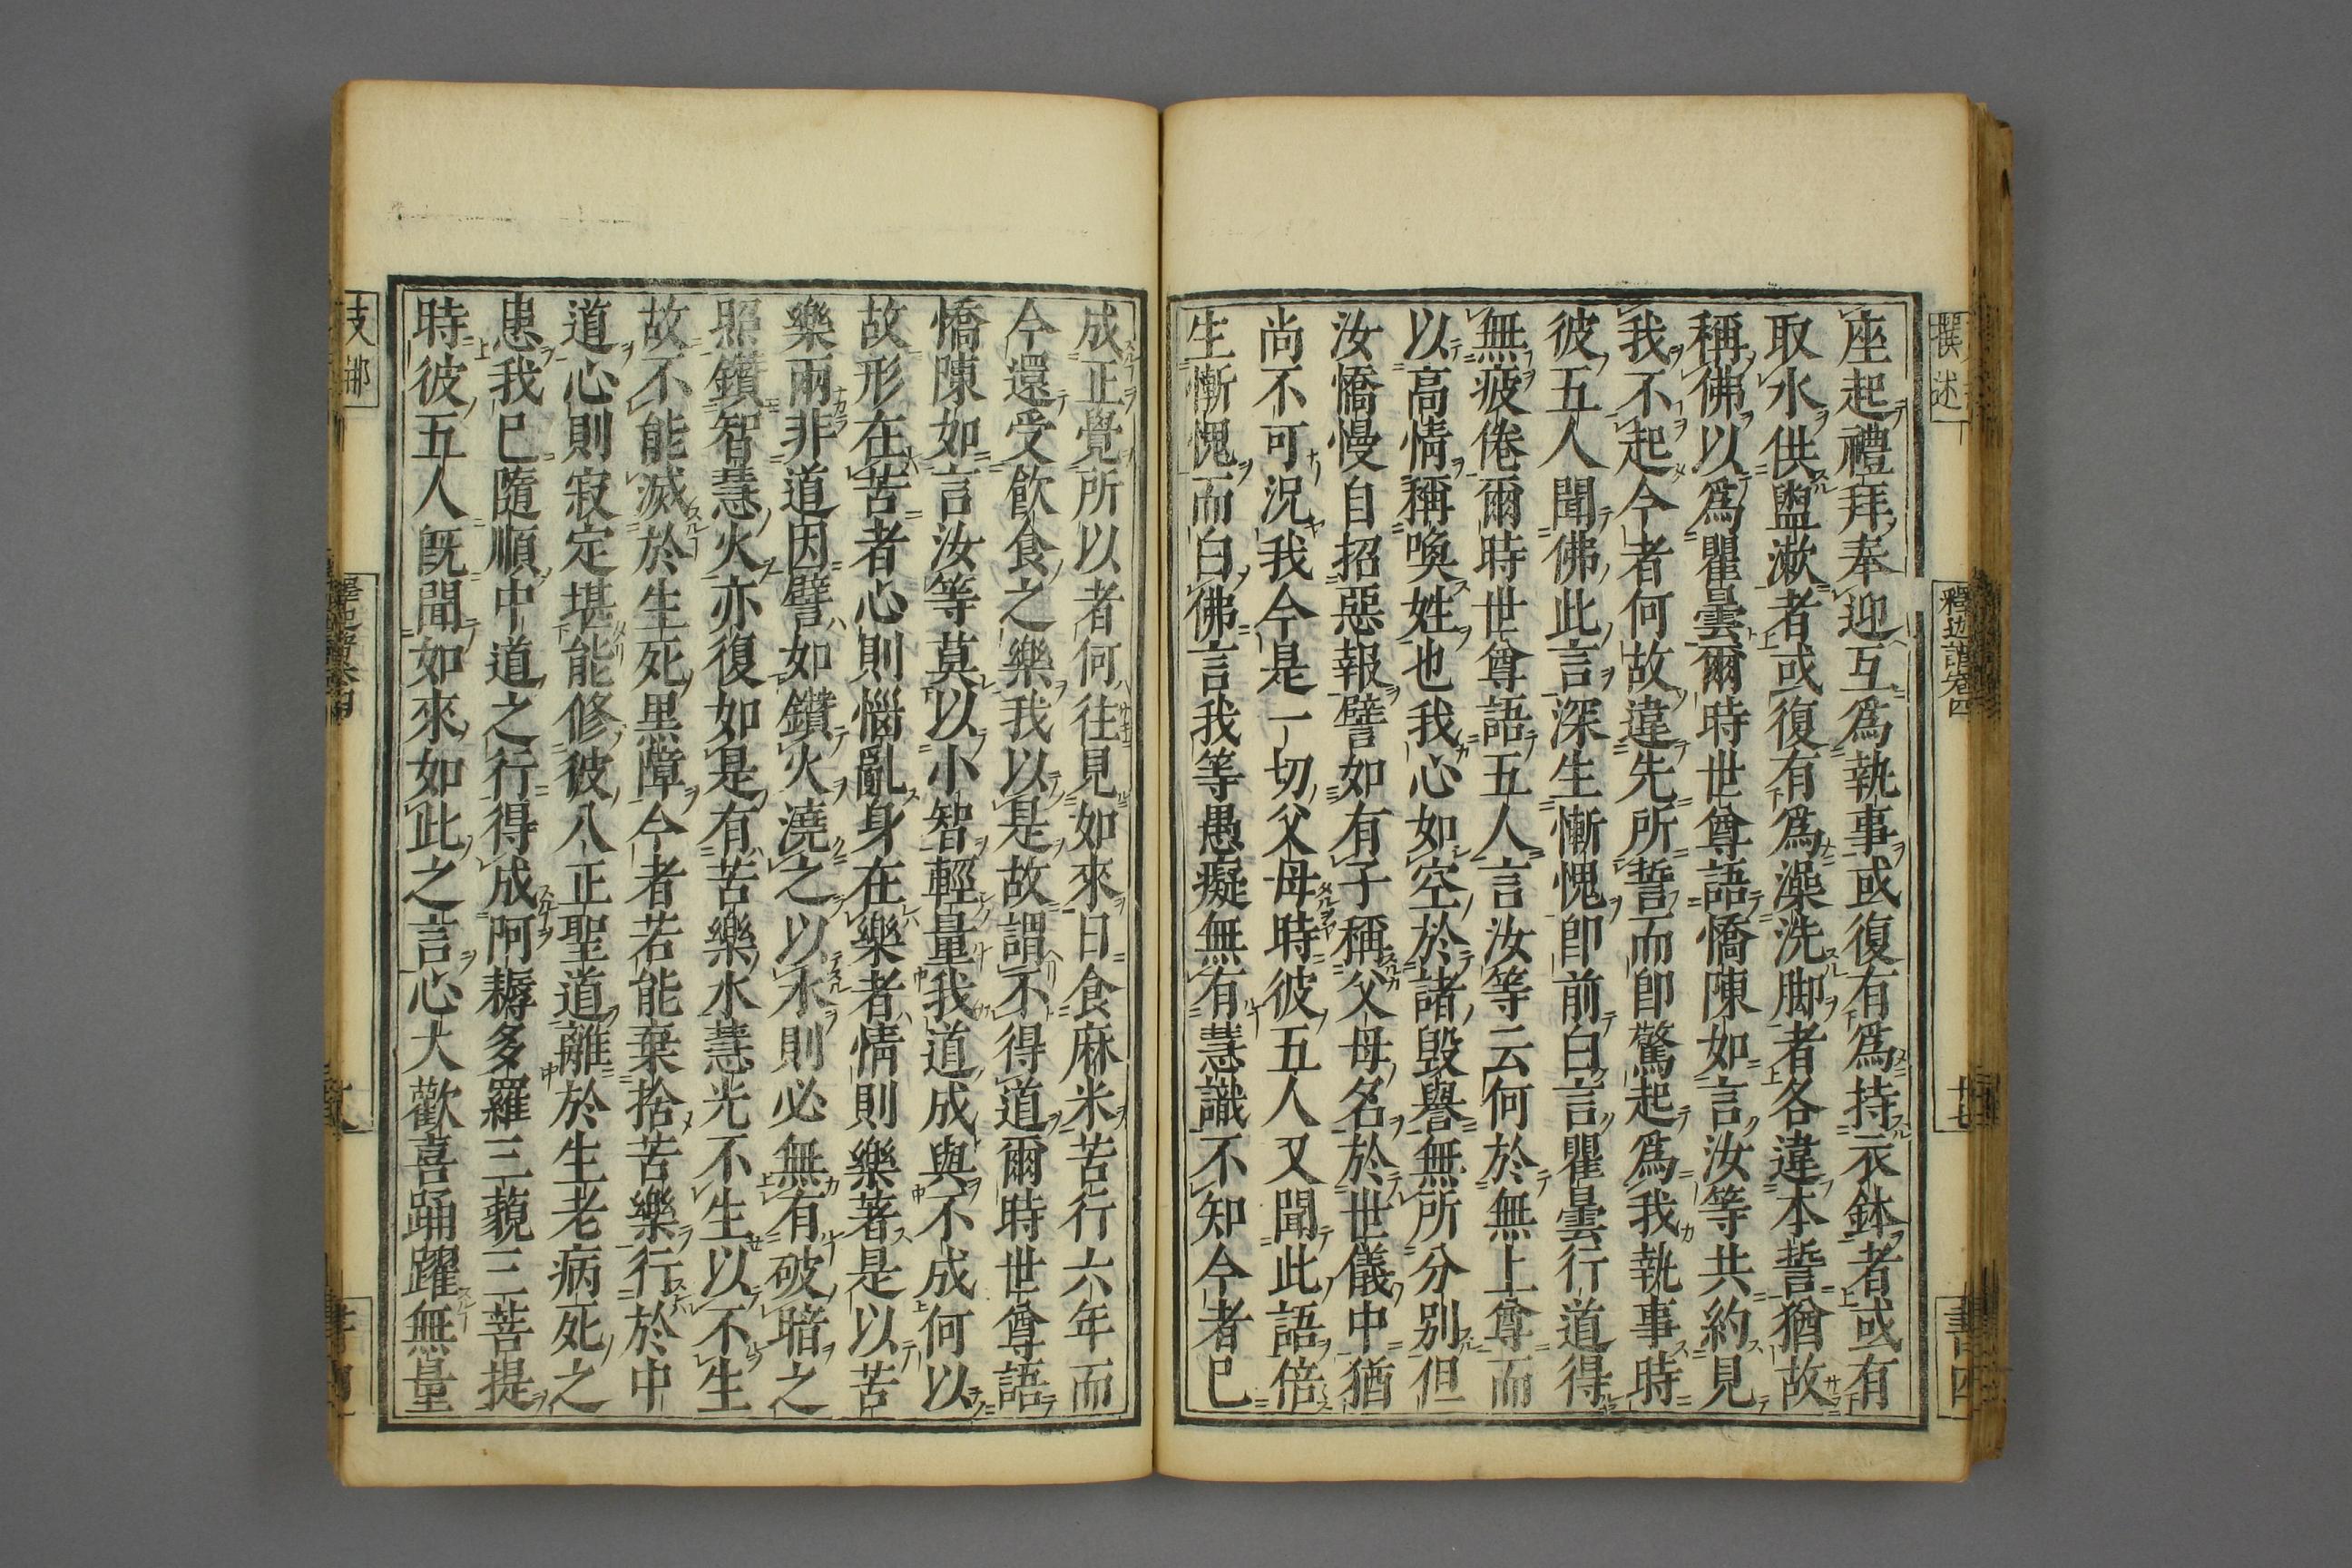 撰述
釋迦譜卷四
十七
座起禮拜奉迎互爲執事或復有爲持衣鉢者或有
取水供盥漱者或復有爲澡洗脚者各違本誓猶故
稱佛以爲瞿曇爾時世尊語憍陳如言汝等共約見
我不起今者何故違先所誓而卽驚起爲我執事時
彼五人聞佛此言深生慚愧卽前白言瞿曇行道得
無疲倦爾時世尊語五人言汝等云何於無上尊而
以高情稱喚姓也我心如空於諸毀譽無所分別但
汝憍慢自招惡報譬如有子稱父母名於世儀中猶
尚不可況我今是一切父母時彼五人又聞此語倍
生慚愧而白佛言我等愚癡無有慧識不知今者已
成正覺所以者何往見如來日食麻米苦行六年而
今還受飲食之樂我以是故謂不得道爾時世尊語
憍陳如言汝等莫以小智輕量我道成與不成何以
故形在苦者心則惱亂身在樂者情則樂著是以苦
樂兩非道因譬如鑽火澆之以水則必無有破暗之
照鑽智慧火亦復如是有苦樂水慧光不生以不生
故不能滅於生死黑障今者若能棄捨苦樂行於中
道心則寂定堪能修彼八正聖道離於生老病死之
患我已隨順中道之行得成阿耨多羅三藐三菩提
時彼五人既聞如來如此之言心大歡喜踊躍無量
支那